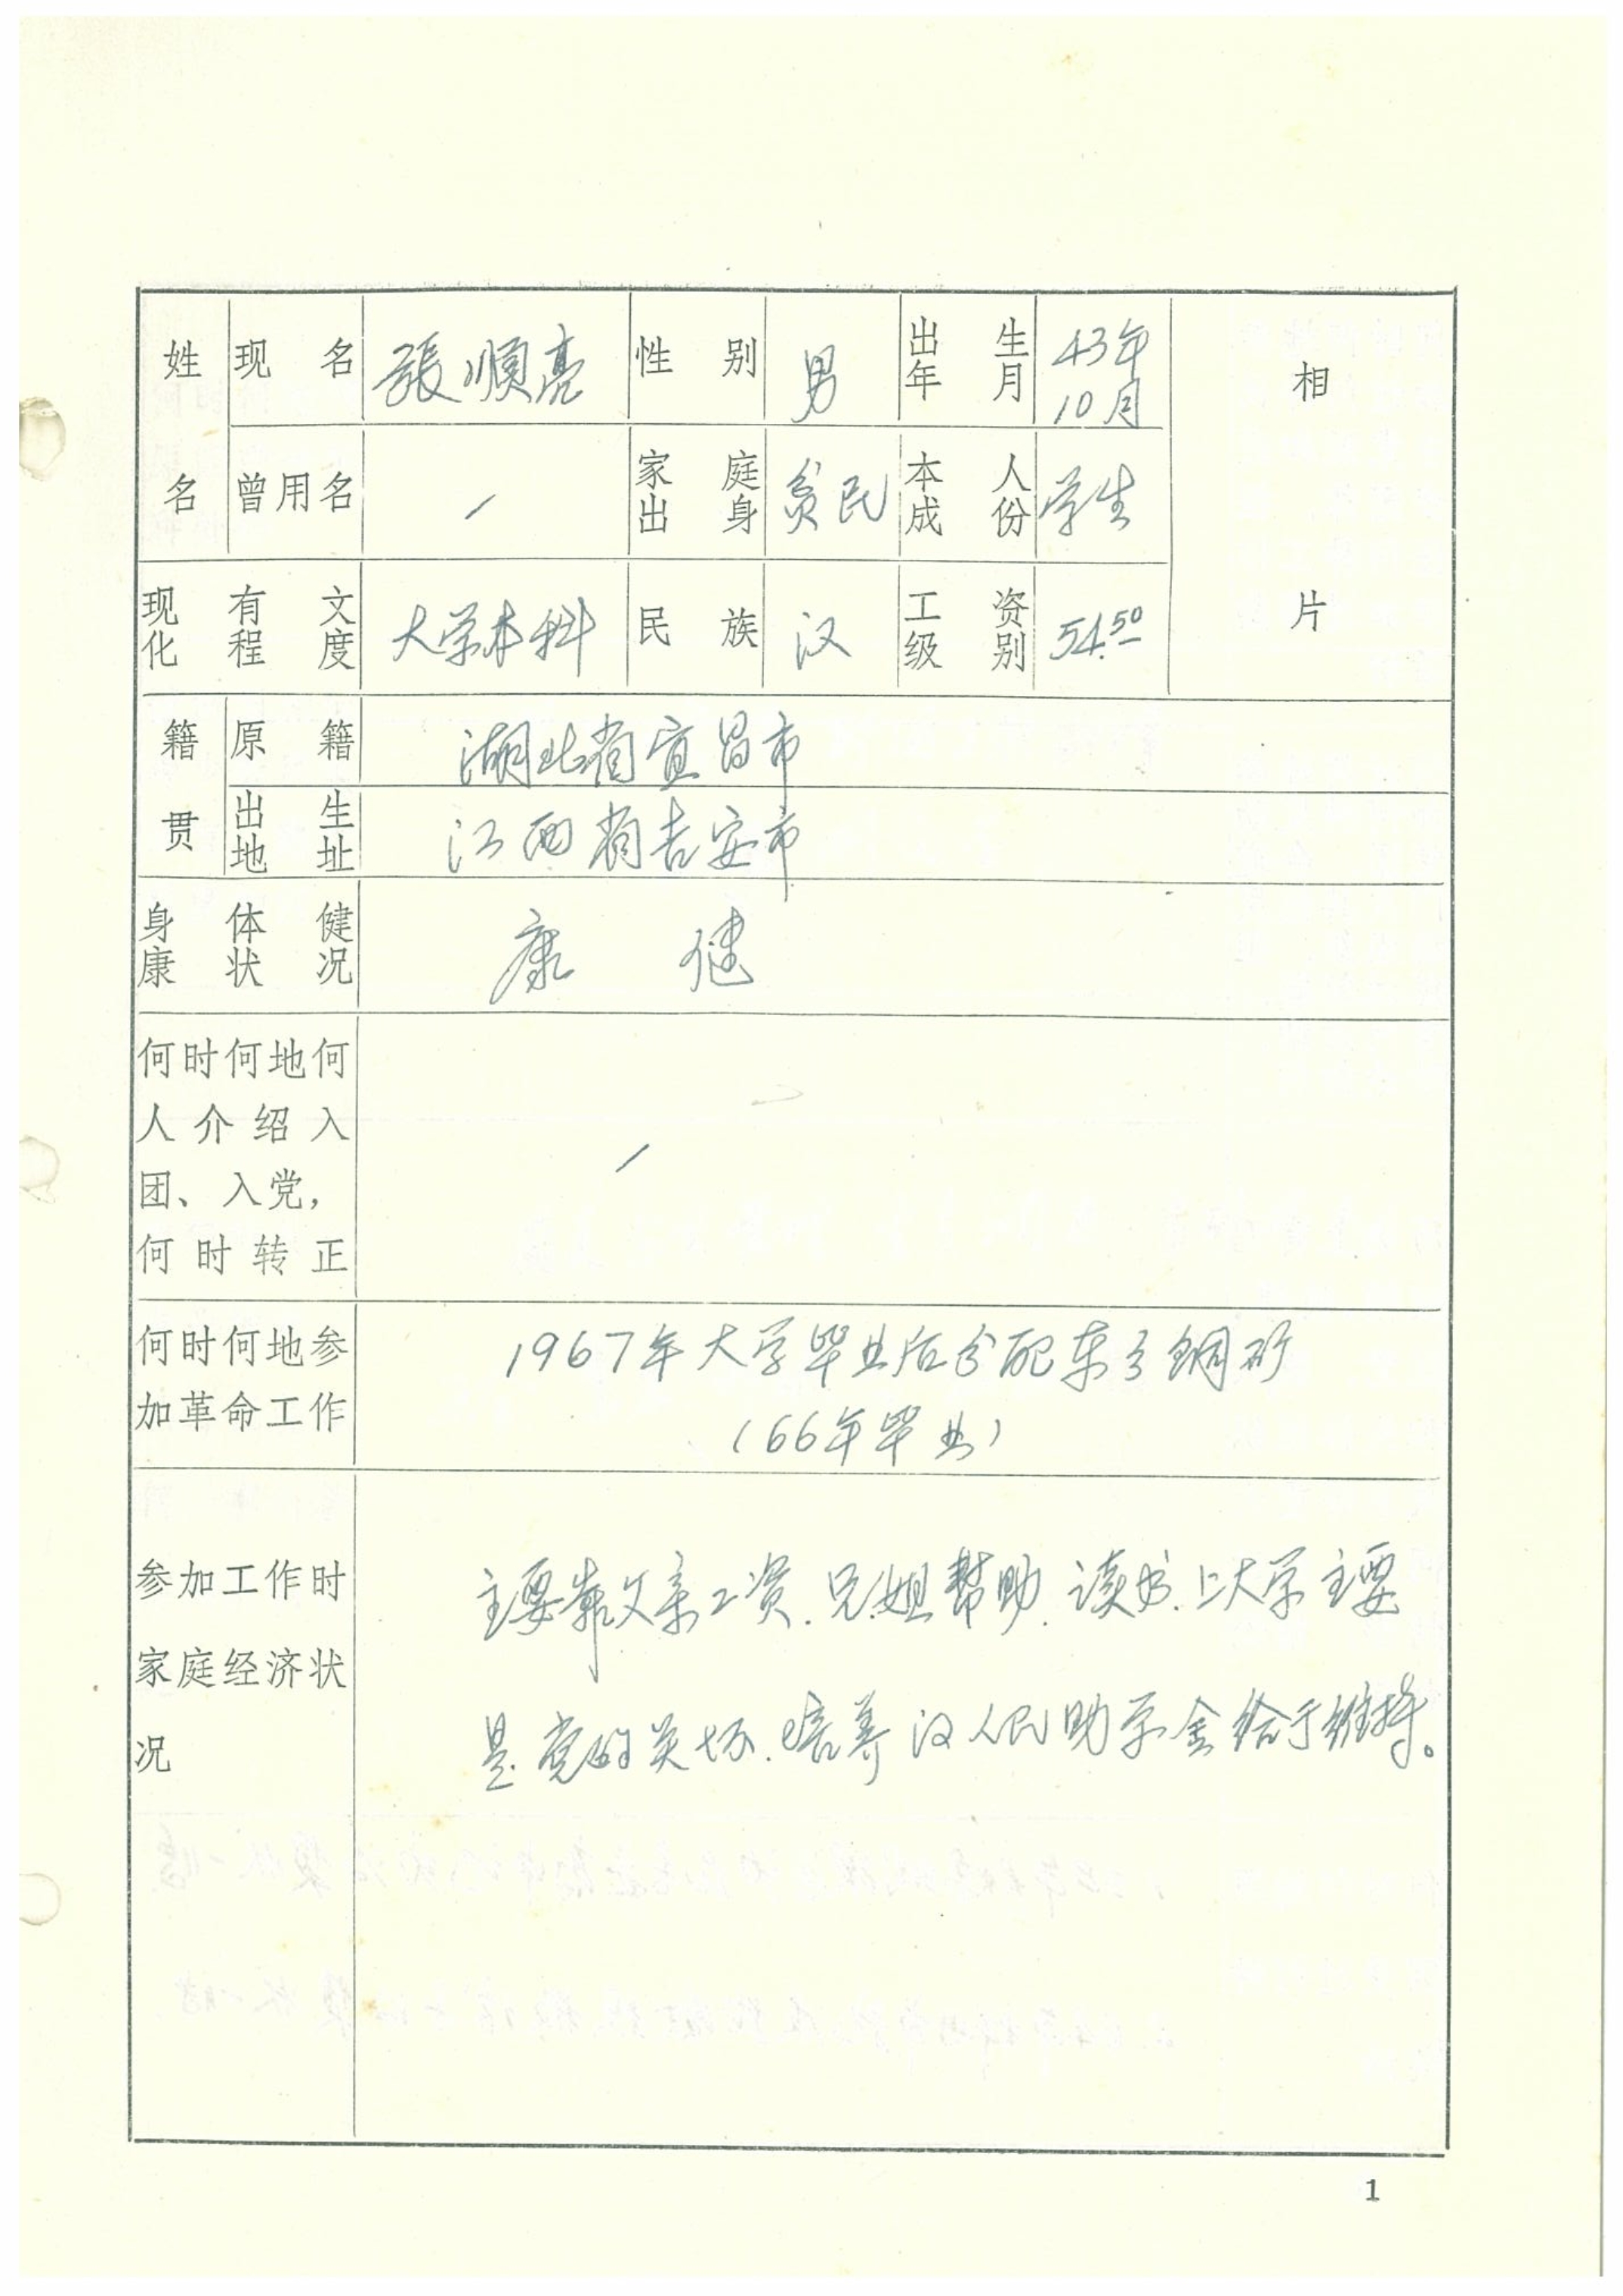 姓名 现名 張順亮 性别 男 出生年月 43年10月 相片
曾用名 / 家庭出身 贫民 本人成份 学生
现有文化程度 大学本科 民族 汉 工资级别 54.50
籍贯 原籍 湖北省宜昌市
出生地址 江西省吉安市
身体健康状况 康健
何时何地何
人介绍入
团、入党，
何时转正 /
何时何地参
加革命工作
1967年大学毕业后分配东乡铜矿
(66年毕业)
参加工作时
家庭经济状
况
主要靠父亲工资.兄姐帮助.读书.上大学主要
是党的关怀.培养 汉人民助学金给于维持。
1